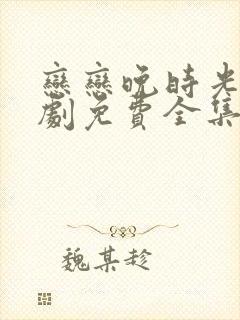 戀戀晚時光
劇免費全集
魏某趁